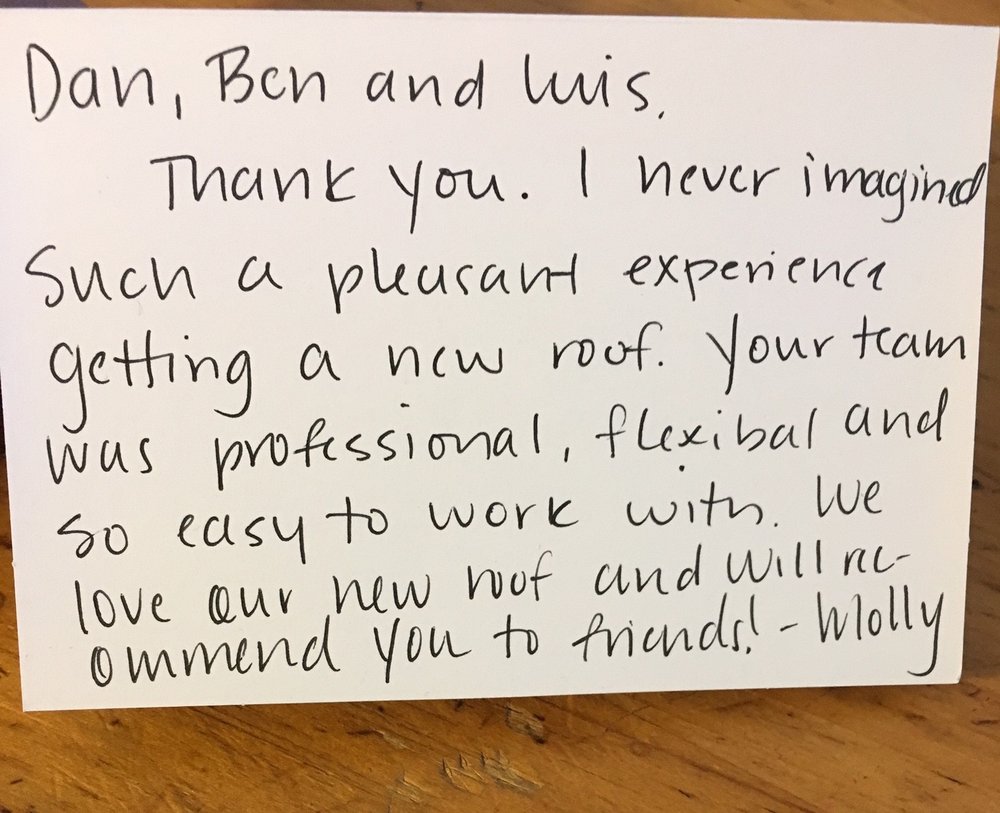 Dan, Ben and Luis.
Thank you. I never imagined
Such a pleasant experience
getting a new roof. Your team
was professional, flexibal and
so easy to work with. We
love our new roof and will rec-
ommend you to friends! - Molly